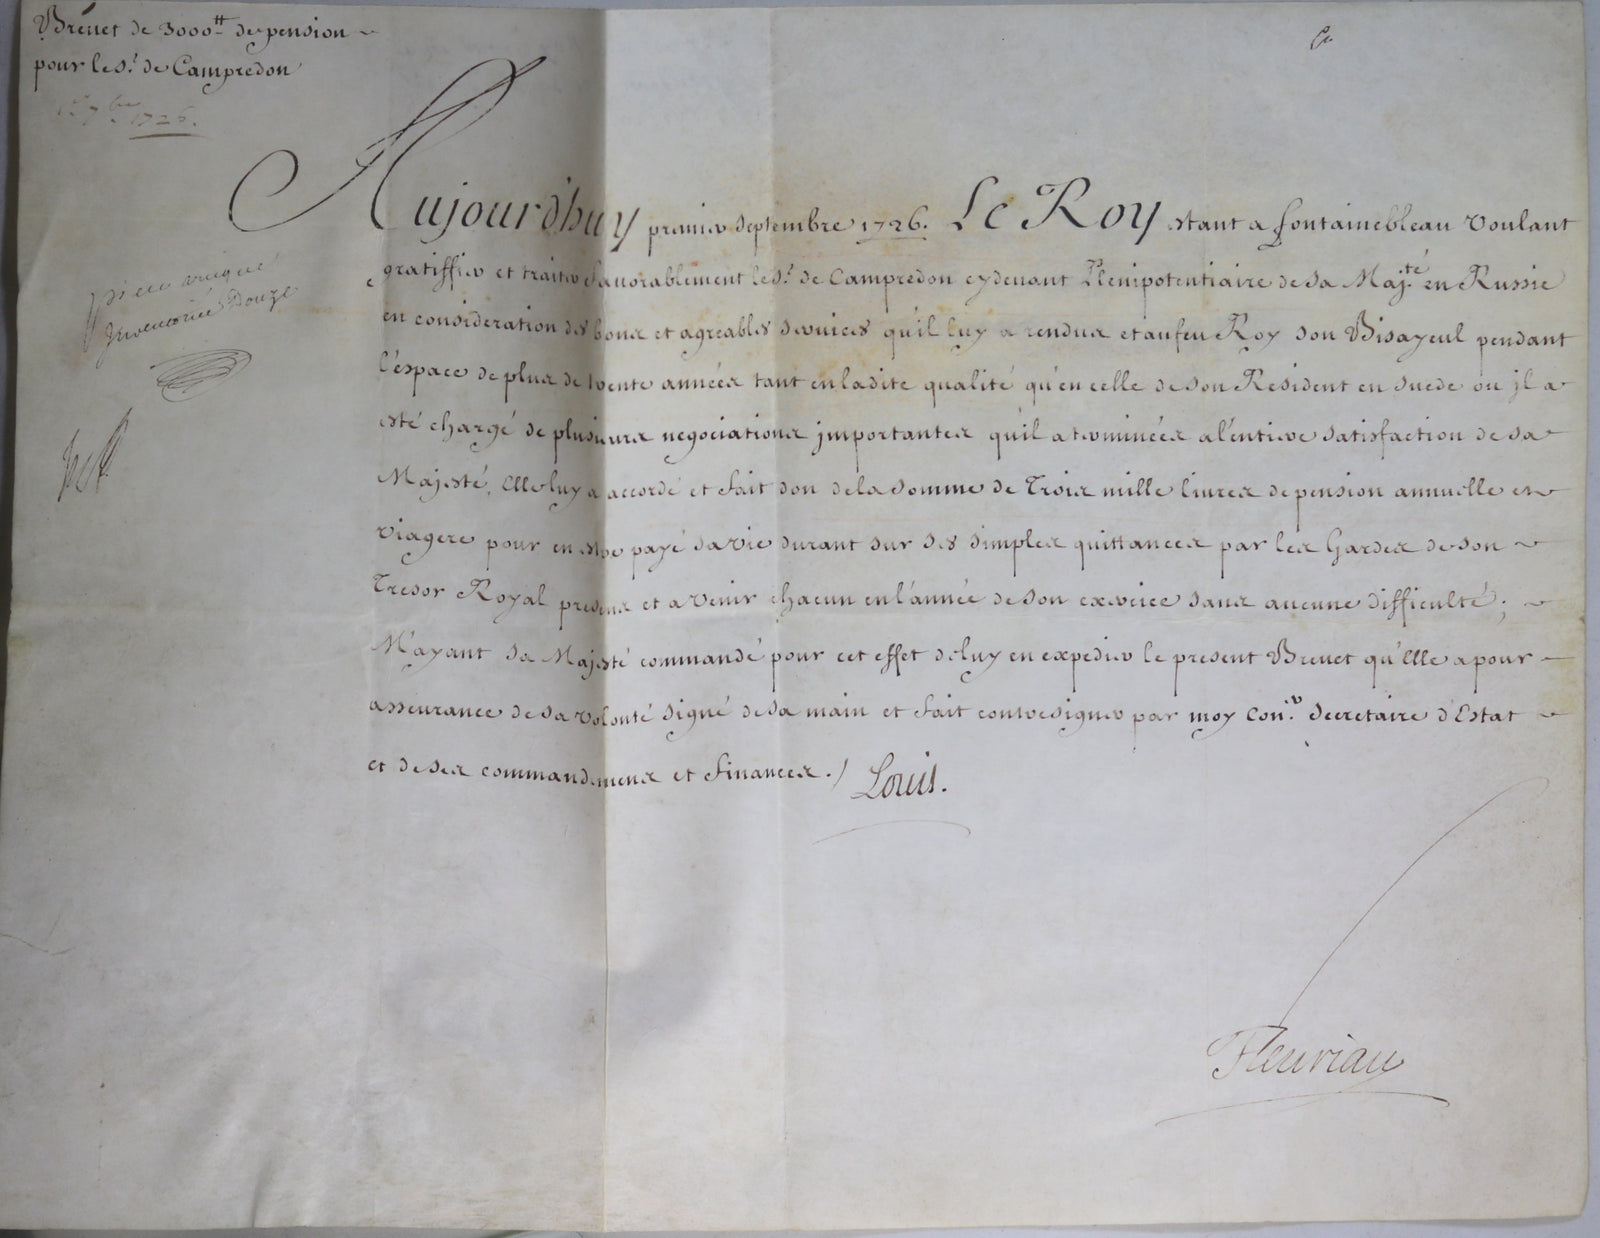 Brevet de 3000ᵗᵗ de pension
pour le Sʳ. de Campredon
1ᵉʳ 7ᵇʳᵉ 1726.
Aujourd'huy premier Septembre 1726. Le Roy estant a fontainebleau voulant
gratiffier et traiter favorablement le Sʳ. de Campredon cydevant Plenipotentiaire de Sa Majᵗᵉ. en Russie
en consideration des bons et agreables services qu'il luy a rendus et au feu Roy son Bisayeul pendant
l'espace de plus de trente années tant en ladite qualité qu'en celle de son Resident en Suede ou jl a
esté chargé de plusieurs negociations jmportantes qu'il a terminées a l'entiere satisfaction de sa
Majesté, Elle luy a accordé et fait don de la somme de Trois mille livres de pension annuelle et
viagere pour en estre payé sa vie durant sur ses simples quittances par les Gardes de son
Tresor Royal presens et avenir chacun en l'année de son exercice sans aucune difficulté;
M'ayant Sa Majesté commandé pour cet effet de luy en expedier le present Brevet qu'Elle a pour
asseurance de sa volonté signé de sa main et fait contresigner par moy Conʳ. Secretaire d'Estat
et de ses commandemens et finances./
Louis.
piece unique
Inventoriée Douze
Fleuriau